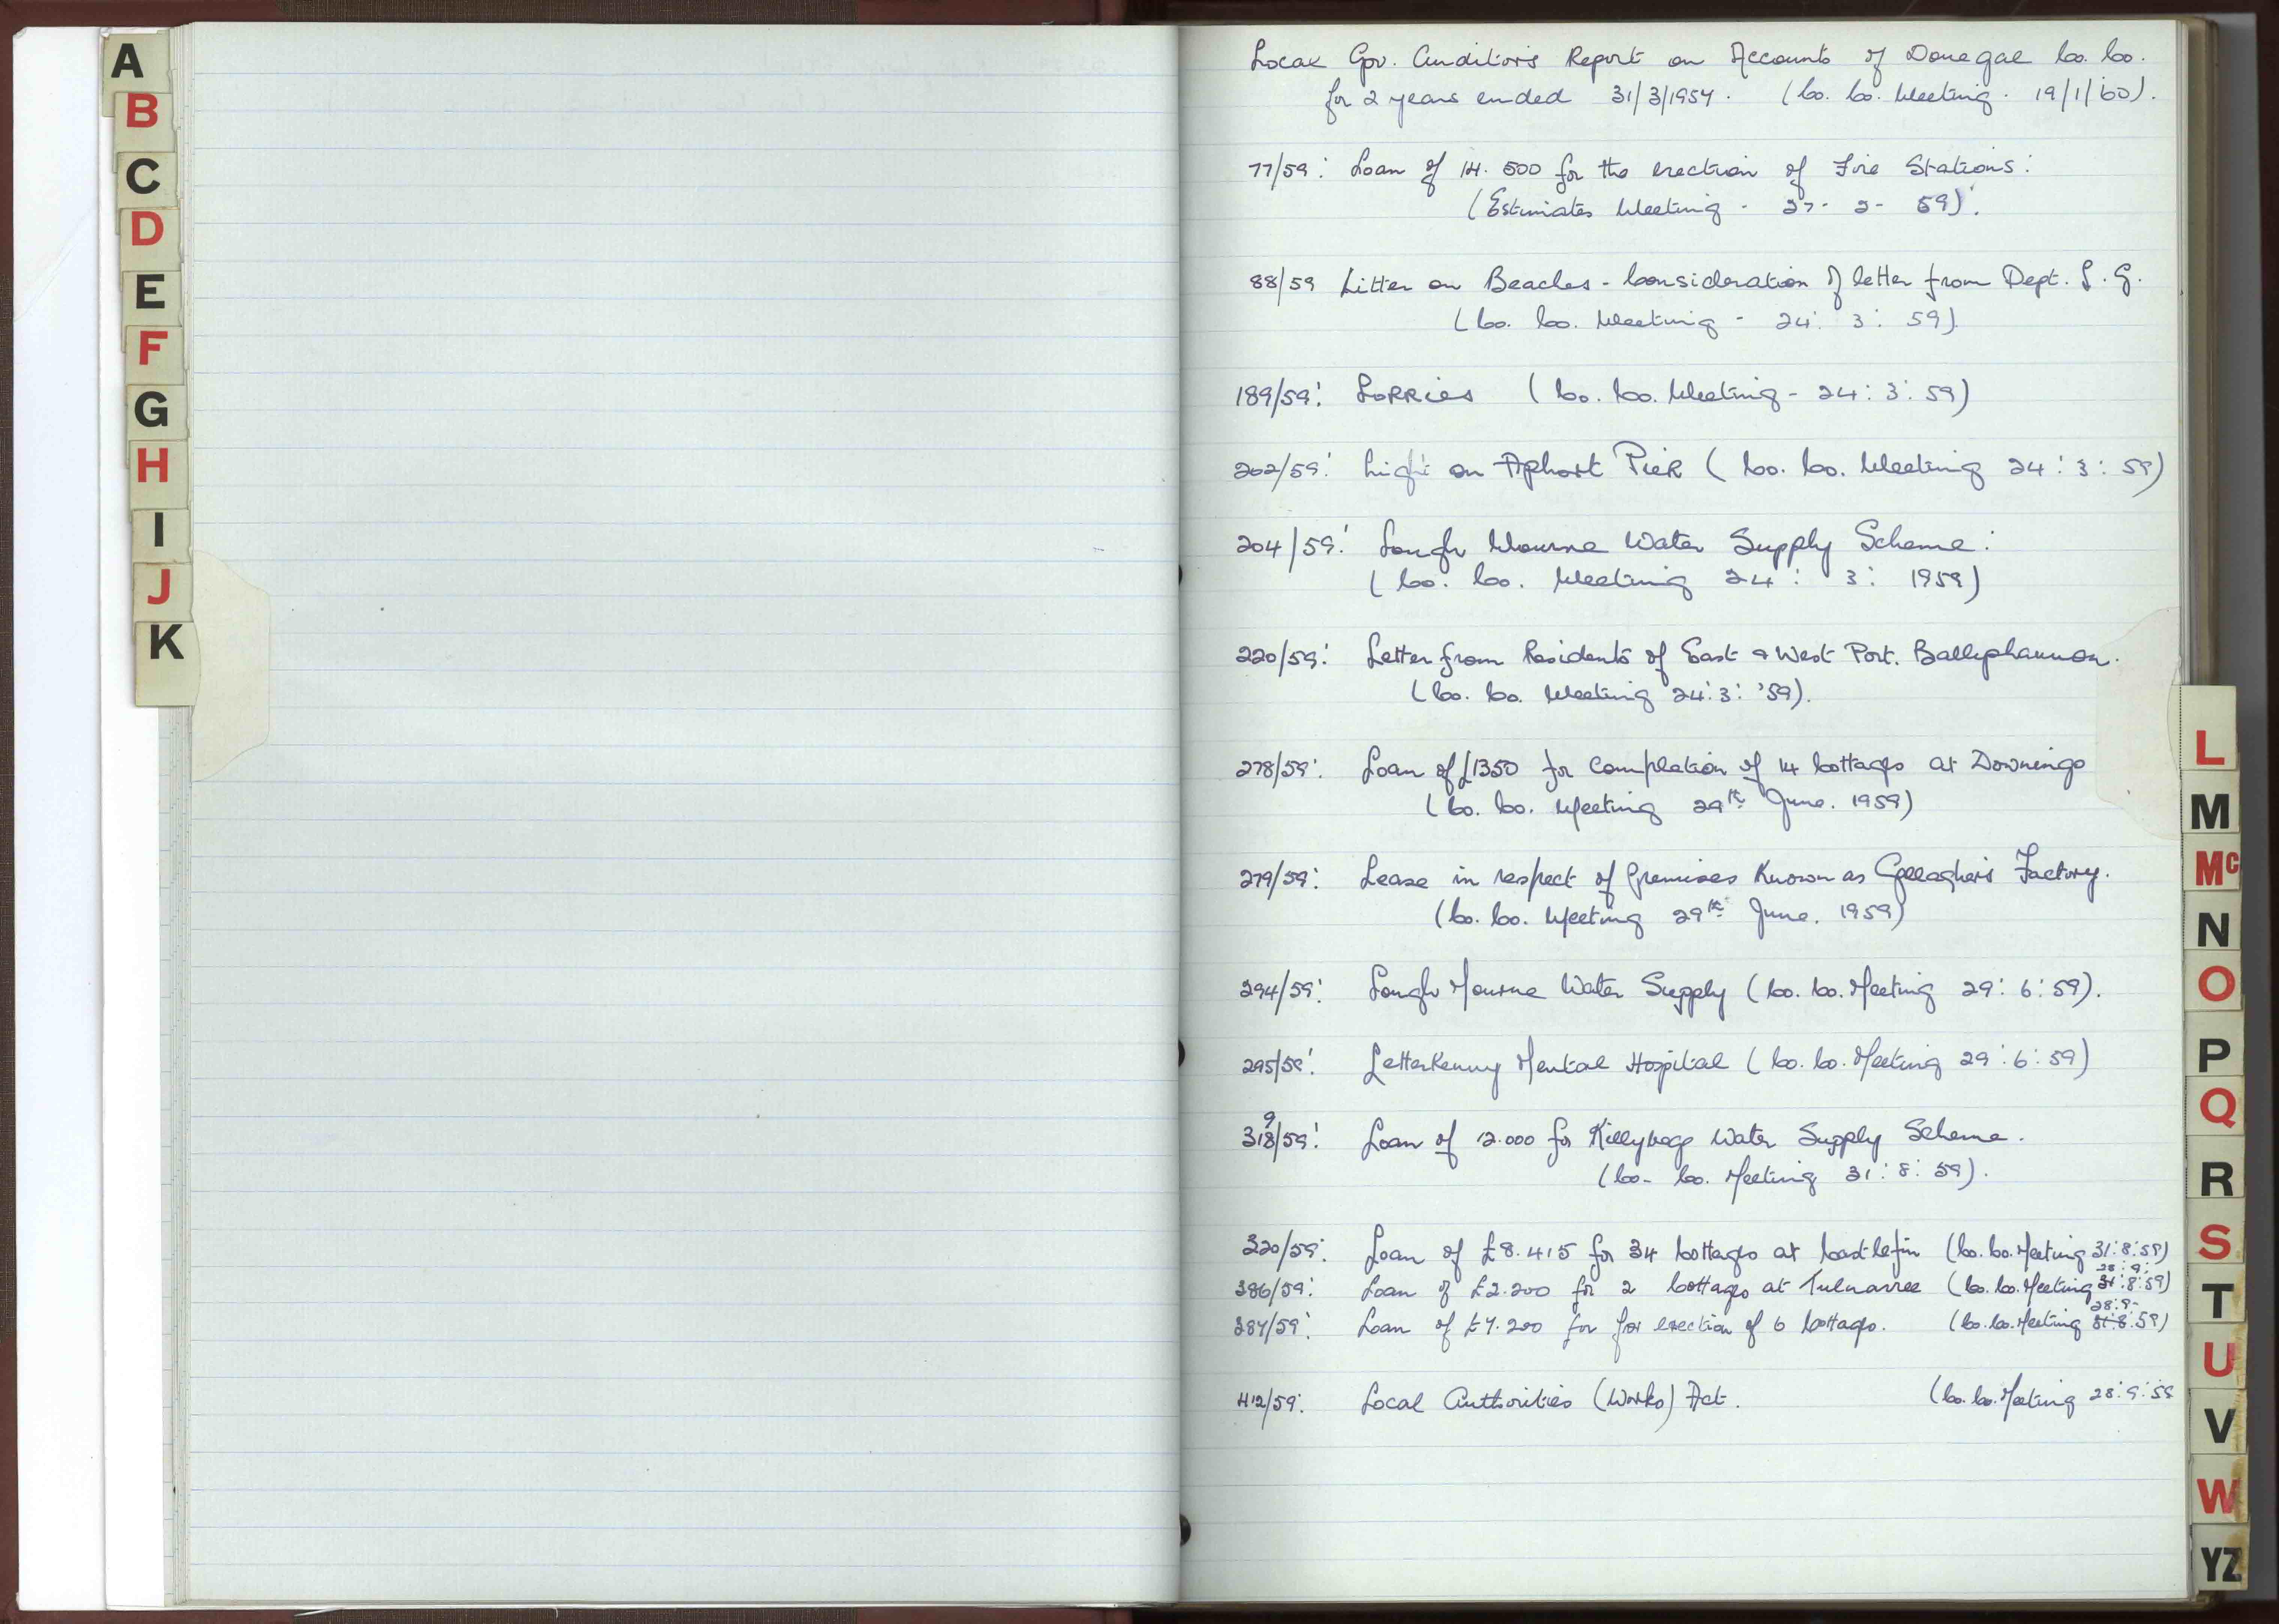 A
B
C
D
E
F
G
H
I
J
K
Local Gov. Auditor's Report on Accounts of Donegal Co. Co.
for 2 years ended 31/3/1957. (Co. Co. Meeting. 19/1/60).
77/59: Loan of 14.500 for the erection of Fire Stations:
(Estimates Meeting - 27- 2- 59).
88/59 Litter on Beaches - Consideration of letter from Dept. L. G.
(Co. Co. Meeting - 24: 3: 59).
189/59: Lorries (Co. Co. Meeting - 24: 3: 59)
202/59: Light on Aphort Pier (Co. Co. Meeting 24: 3: 59)
204/59: Lough Mourne Water Supply Scheme:
(Co. Co. Meeting 24: 3: 1959)
220/59: Letter from Residents of East & West Port. Ballyshannon.
(Co. Co. Meeting 24:3: '59).
278/59: Loan of £1350 for Completion of 14 Cottages at Downings
(Co. Co. Meeting 29th June. 1959)
279/59: Lease in respect of premises Known as Gallagher's Factory.
(Co. Co. Meeting 29th June. 1959)
294/59: Lough Mourne Water Supply (Co. Co. Meeting 29: 6: 59).
295/59: Letterkenny Mental Hospital (Co. Co. Meeting 29: 6: 59)
9
318/59: Loan of 12.000 for Killybegs Water Supply Scheme.
(Co- Co. Meeting 31: 8: 59).
320/59: Loan of £8.415 for 34 Cottages at Castlefin (Co. Co. Meeting 31:8:59)
28:9:
386/59: Loan of £2.200 for 2 Cottages at Tulnarree (Co. Co. Meeting 31:8:59)
28:9-
387/59: Loan of £7.200 for for erection of 6 Cottages. (Co. Co. Meeting 31:8:59)
412/59: Local Authorities (Works) Act. (Co. Co. Meeting 28:9:59
L
M
Mc
N
O
P
Q
R
S
T
U
V
W
YZ